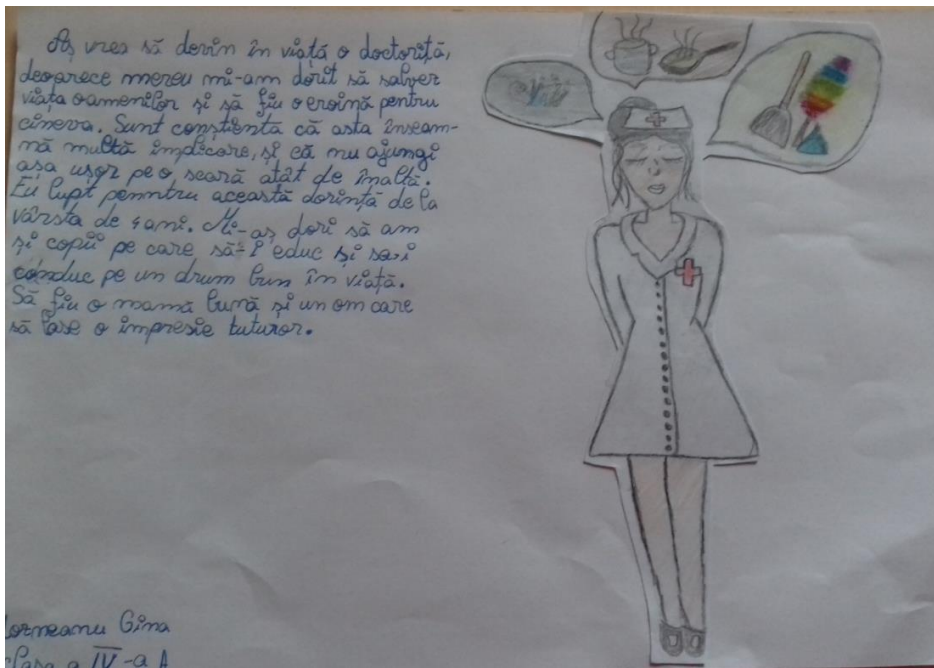 Aș vrea să devin în viață o doctoriță,
deoarece mereu mi-am dorit să salvez
viața oamenilor și să fiu o eroină pentru
cineva. Sunt conștientă că asta înseam-
nă multă implicare, și că nu ajungi
așa ușor pe o scară atât de înaltă.
Eu lupt penntru această dorință de la
vârsta de 4 ani. Mi-aș dori să am
și copii pe care să-i educ și să-i
conduc pe un drum bun în viață.
Să fiu o mamă bună și un om care
să lase o impresie tuturor.
Gina
clasa a IV-a A